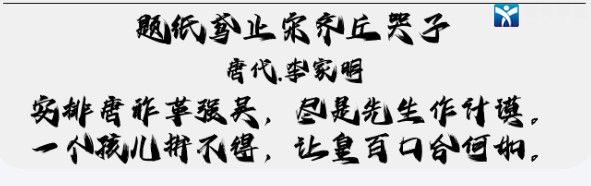 题纸鸢止宋齐丘哭子
唐代.李家明
安排唐祚革强吴，尽是先生作计谟。
一个孩儿拚不得，让皇百口合何如。